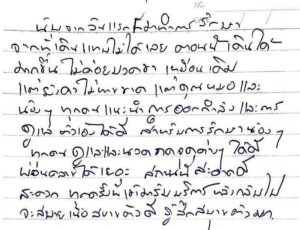 นับจากวันแรกที่มาทำการรักษา
จากที่เดินแทบไม่ได้เลย ตอนนี้เดินได้
มากขึ้น ไม่ค่อยปวดขา เหมือนเดิม
แต่ยังไม่หายขาด แต่คุณหมอและ
น้องๆ ทุกคนแนะนำการออกกำลัง และการ
ดูแลตัวเองได้ดี สำหรับการรักษาน้องๆ
ทุกคน ดูแลและนวดกดจุดต่างๆ ได้ดี
ผ่อนคลายได้เยอะ สถานที่สะอาดดี
สะดวก ทุกครั้งที่เข้ามารับบริการ หลังกลับไป
จะสบายเนื้อสบายตัวดี รู้สึกสบายตัวมาก